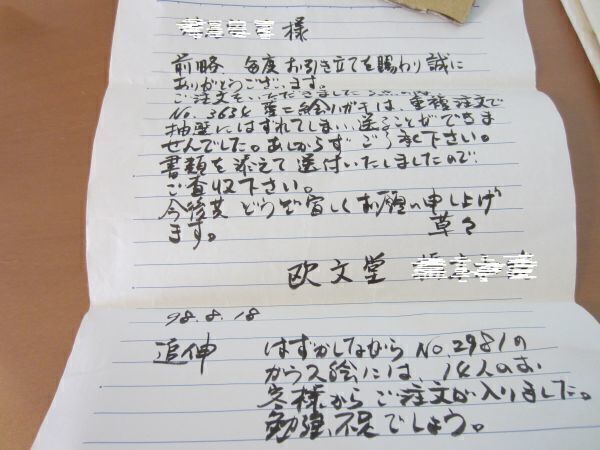 様
前略 毎度お引き立てを賜わり誠に
ありがとうございます。
ご注文をいただきました
No. 3634 夢二絵ハガキは、重複注文で
抽選にはずれてしまい、送ることができま
せんでした。あしからずご了承下さい。
書類を添えて送付いたしましたので
ご査収下さい。
今後共 どうぞ宜しくお願い申し上げ
ます。 草々
欧文堂
98.8.18
追伸 はずかしながら No.2981の
ガラス絵には、14人のお
客様からご注文が入りました。
勉強不足でしょう。